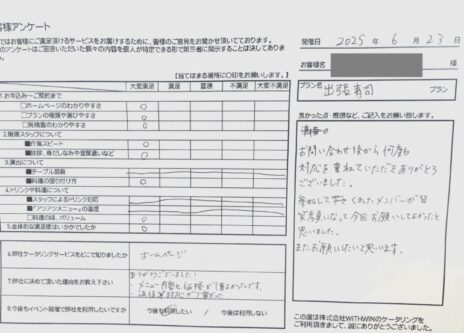 客様アンケート
ではお客様にご満足頂けるサービスをお届けするために、皆様のご意見をお聞かせ頂いております。
のアンケートはご回答いただいた個々の内容を個人が特定できる形で第三者に開示することは決してありま
【当てはまる場所に〇印をお願いします。】
大変満足 満足 普通 不満足 大変不満足
1.お申込み～ご契約まで
□ホームページのわかりやすさ ○
□プランの種類や選びやすさ ○
□見積書のわかりやすさ ○
2.現場スタッフについて
■作業スピード ○
■挨拶、身だしなみや言葉遣いなど ○
3.演出について
■テーブル装飾
■料理の盛り付け方 ○
4.ドリンクや料理について
■スタッフによるドリンク対応
■「アツアツメニュー」の温度
□料理の味、ボリューム ○
5.全体的な満足度はいかがでしたか ○
6.弊社ケータリングサービスをどこで知りましたか ホームページ
7.弊社に決めて頂いた理由をお教え下さい ありがとうございました!
メニュー内容と価格が丁度よかったです。
8.今後もイベント開催で弊社を利用したいですか 今後も利用したい / 今後は利用しない
開催日 2025 年 6 月 23 日
お客様名 様
プラン名 出張寿司 プラン
良かった点・感想など、ご記入お願い致します。
お問い合わせ後から何度も
対応を重ねていただきありがとう
ございました。
参加して下さったメンバーが
なって今回お願いしてよかったと
思いました。
またお願いしたいと思います。
この度は株式会社WITHWINのケータリングを
ご利用頂きまして、誠にありがとうございまし